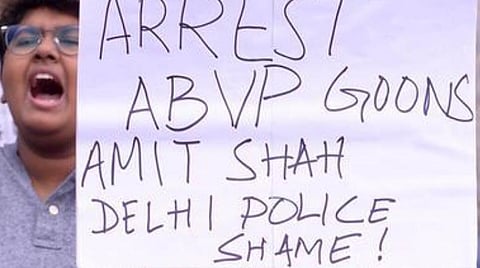 ARREST
ABVP GOONS
AMIT SHAH
DELHI POLICE
SHAME!